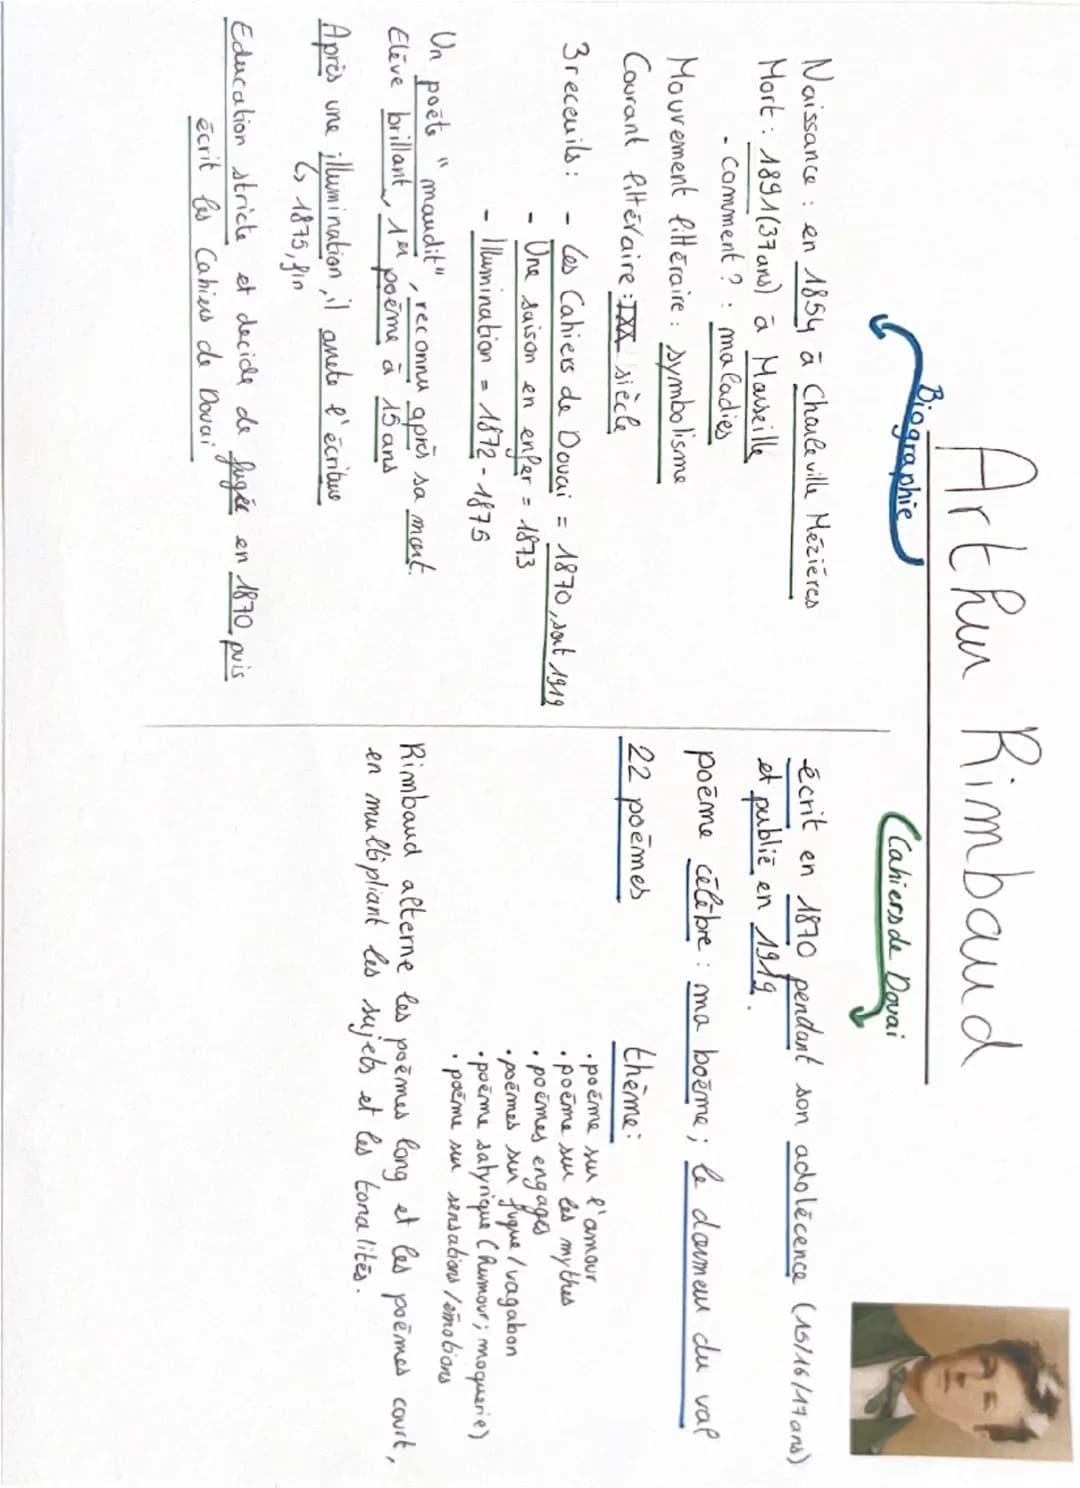 Arthur Rimbaud
Biographie
Naissance : en 1854 à Charleville Mézières
Mort : 1891 (37 ans) à Marseille
- comment ? : maladies
Mouvement littéraire : symbolisme
Courant littéraire : siècle
3 receuils : - Les Cahiers de Douai = 1870, sort 1919
- Une saison en enfer = 1873
- Illumination = 1872 - 1875
Un poète " maudit", reconnu après sa mort.
Elève brillant, 1er poème à 15 ans
Après une illumination, il arrete l'écriture
↳ 1875, fin
Education stricte et decide de fugée en 1870, puis
écrit les Cahiers de Douai
Cahiers de Douai
écrit en 1870 pendant son adolécence (15/16/17 ans)
et publié en 1919.
poème célèbre : ma boème ; le dormeur du val
22 poèmes
thème :
• poème sur l'amour
• poème sur les mythes
• poèmes engagés
• poèmes sur fugue / vagabon
• poème satyrique (humour ; moquerie)
• poème sur sensations / émotions
Rimbaud alterne les poèmes long et les poèmes court,
en multipliant les sujets et les tonalités.